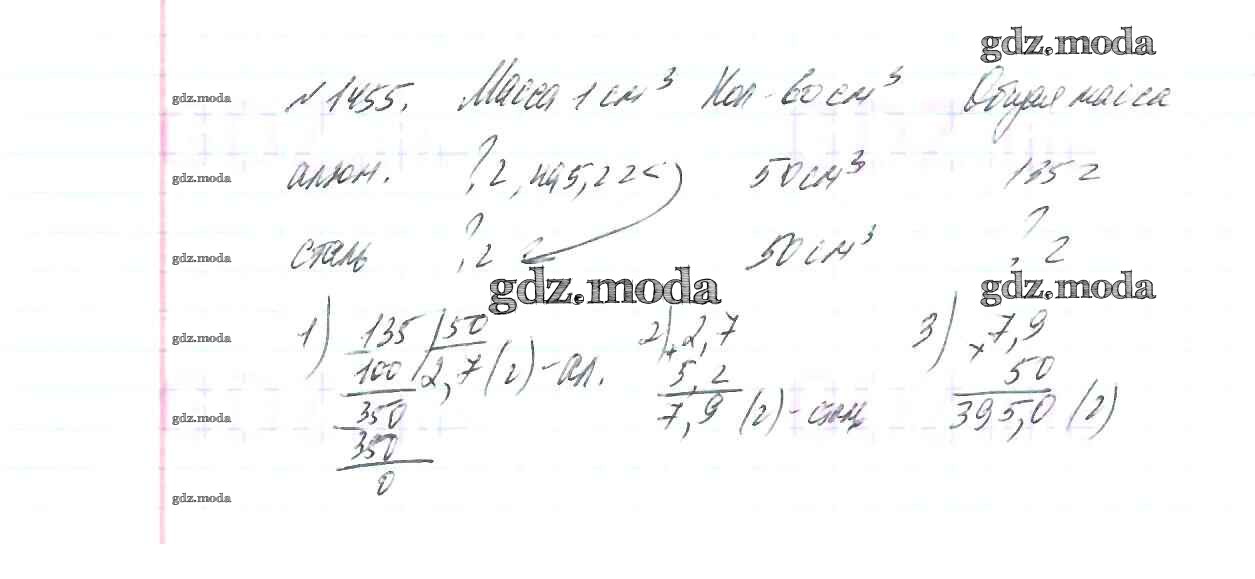 gdz.moda
№ 1455. Масса 1 см³ Кол-во см³ Общая масса
gdz.moda
алюм. ? г, на 5,2 г < 50 см³ 135 г
gdz.moda
сталь ? г 50 см³ ? г
gdz.moda
gdz.moda gdz.moda
1) 135 | 50 2) + 2,7 3) × 7,9
gdz.moda
100 2,7 (г) - ал. 5,2 50
350 7,9 (г) - сталь 395,0 (г)
gdz.moda
350
0
gdz.moda